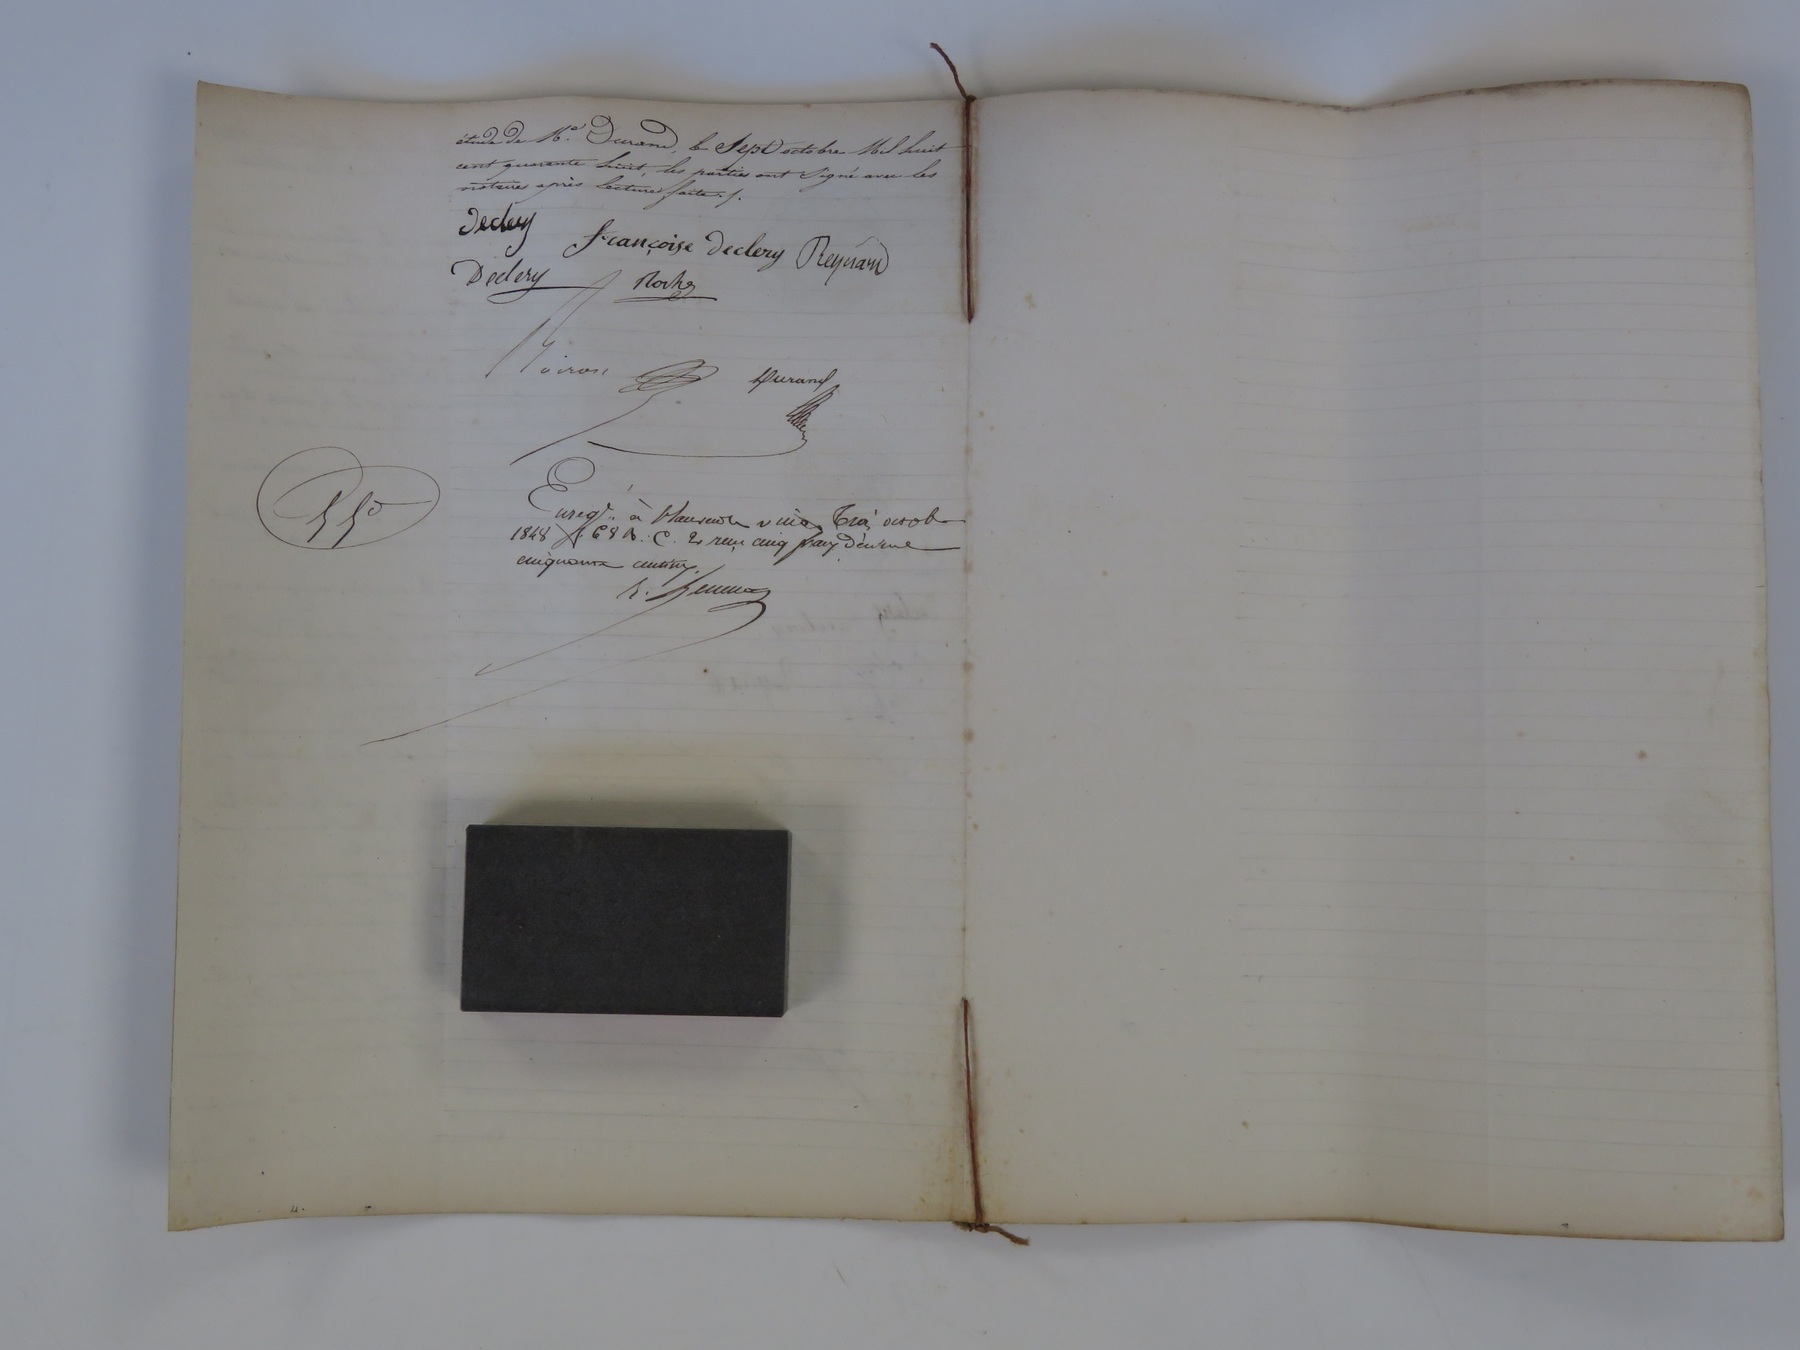 étude de Me. Durand, le Sept octobre Mil huit
cent quarante huit, les parties ont Signé avec les
notaires après lecture faite./.
Declery
françoise Declery Reynard
Declery Roche
Voiron Durand
Enregé. à vingt Trois octobre
1848 f. 68 R. C. 2 reçu cinq francs Décime
cinquante centimes.